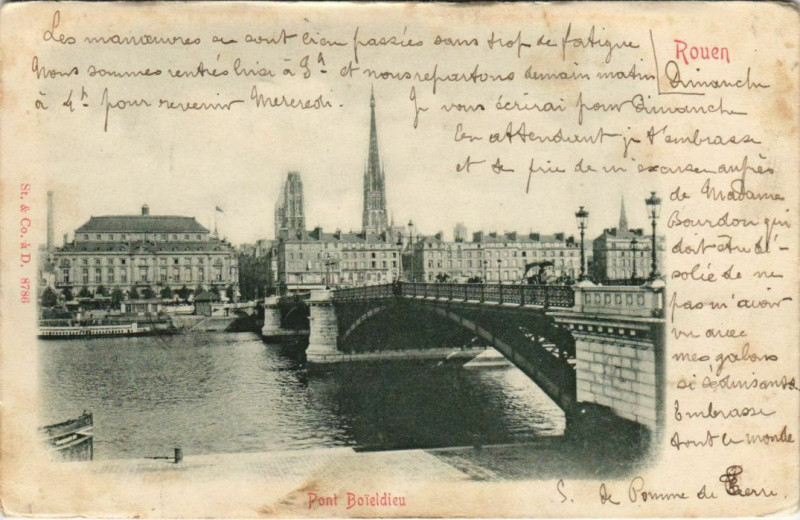 Les manœuvres se sont bien passées sans trop de fatigue
Nous sommes rentrés hier à 9h et nous repartons demain matin Dimanche
à 4h pour revenir Mercredi. Je vous écrirai pour Dimanche
En attendant je t'embrasse
et te prie de m'excuser auprès
de Madame
Bourdon qui
doit être dé-
solée de ne
pas m'avoir
vu avec
mes galons
si séduisants
Embrasse
tout le monde
S. de Pomme de Terre.
Rouen
St. & Co. à D. 8786
Pont Boïeldieu